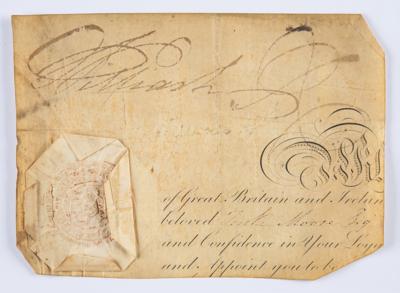 William R
of Great Britain and Irelan
beloved Moore Esq
and Confidence in Your Loya
and Appoint you to be